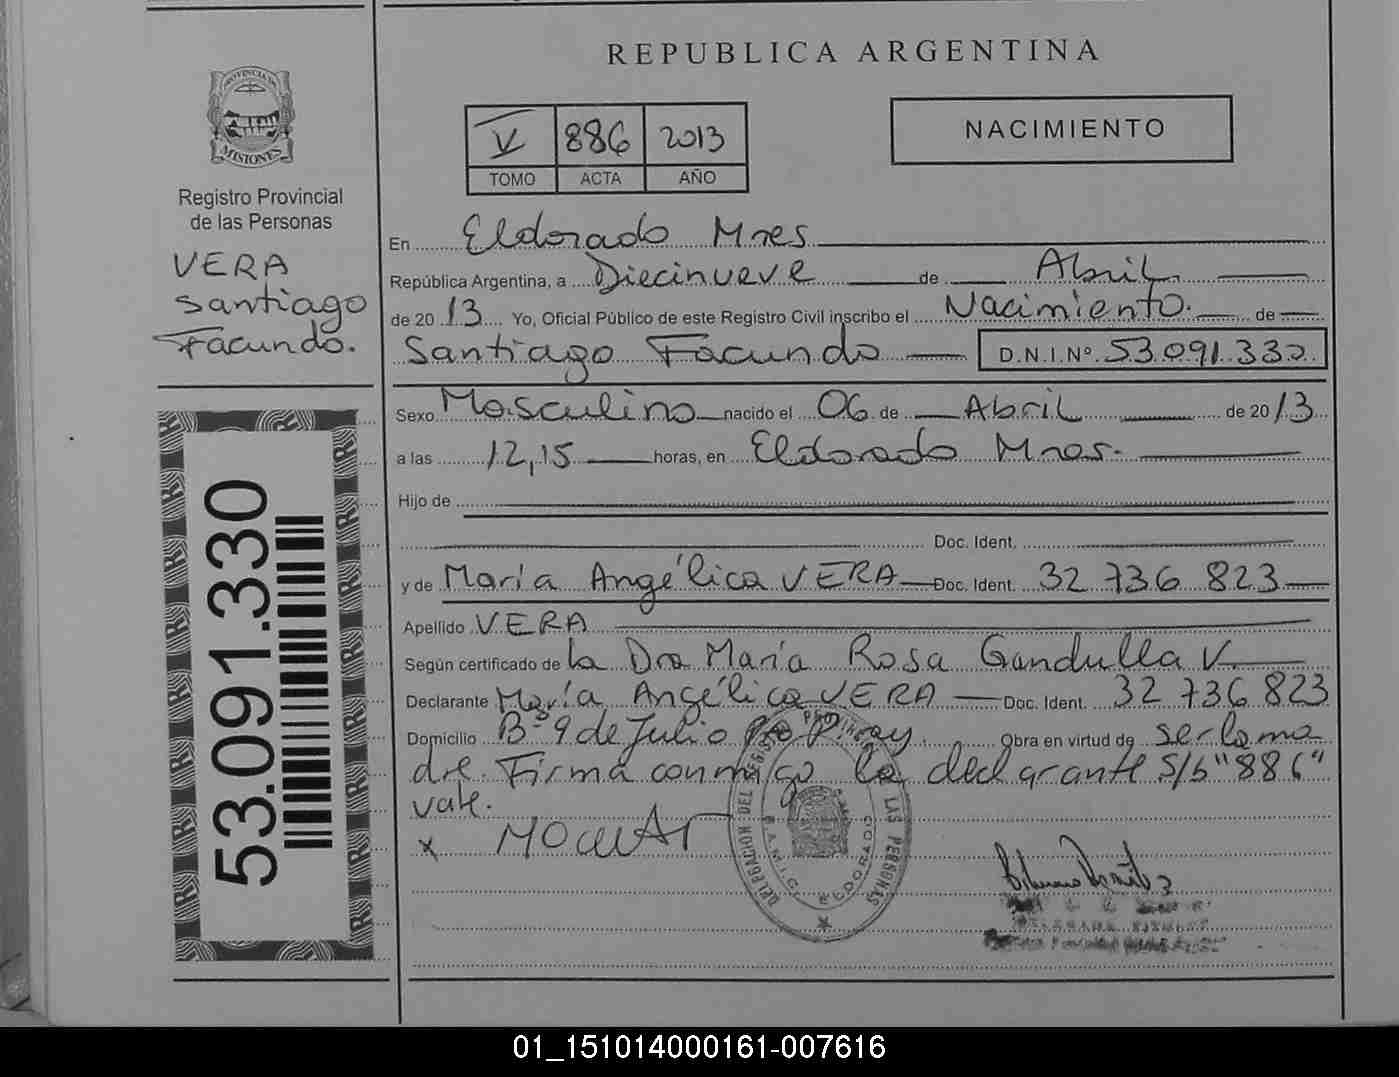 REPUBLICA ARGENTINA
PROVINCIA DE
MISIONES
Registro Provincial
de las Personas
VERA
Santiago
Facundo.
53.091.330
V 886 2013
TOMO ACTA AÑO
NACIMIENTO
En Eldorado Mnes
República Argentina, a Diecinueve de Abril
de 2013 Yo, Oficial Público de este Registro Civil inscribo el Nacimiento. de
Santiago Facundo D.N.I.Nº. 53.091.330
Sexo Masculino nacido el 06 de Abril de 2013
a las 12,15 horas, en Eldorado Mnes.
Hijo de
Doc. Ident.
y de María Angélica VERA Doc. Ident. 32 736 823
Apellido VERA
Según certificado de la Dra María Rosa Gandulla V.
Declarante María Angélica VERA Doc. Ident. 32 736 823
Domicilio Bº 9 de Julio Pto Piray. Obra en virtud de ser la ma
dre. Firma conmigo la declarante S/b "886"
vale.
x
DELEGACION DEL REGISTRO PROVINCIAL DE LAS PERSONAS
ELDORADO
01_151014000161-007616